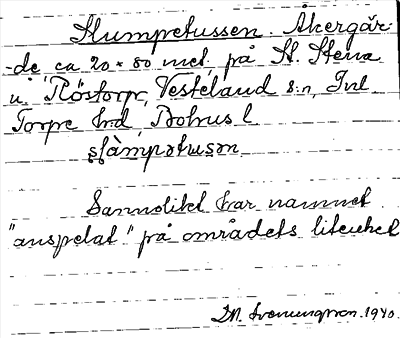 Slumpetussen. Åkergär-
de ca 20 × 80 met. på St. Stena
u. Röstorp, Vesteland s:n, Inl.
Torpe h:d, Bohus l.
Sannolikt har namnet
"anspelat" på områdets litenhet
1940.